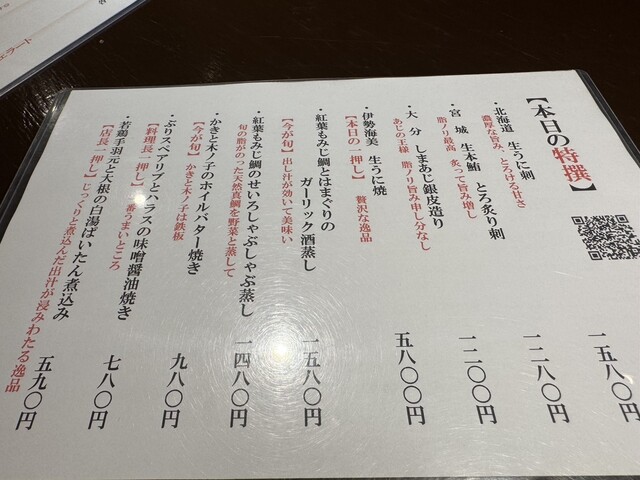 【本日の特撰】
・北海道 生うに刺 一五八〇円
濃厚な旨み、とろける甘さ
・宮城 生本鮪 とろ炙り刺 一二八〇円
脂ノリ最高 炙って旨み増し
・大分 しまあじ銀皮造り 一二〇〇円
あじの王様 脂ノリ旨み申し分なし
・伊勢海美 生うに焼 五八〇〇円
【本日の一押し】 贅沢な逸品
・紅葉もみじ鯛とはまぐりの
ガーリック酒蒸し 一五八〇円
【今が旬】出し汁が効いて美味い
・紅葉もみじ鯛のせいろしゃぶしゃぶ蒸し 一四八〇円
旬の脂がのった天然真鯛を野菜と蒸して
・かきと木ノ子のホイルバター焼き 九八〇円
【今が旬】かきと木ノ子は鉄板
・ぶりスペアリブとハラスの味噌醤油焼き 七八〇円
【料理長一押し】一番うまいところ
・若鶏手羽元と大根の白湯ぱいたん煮込み 五九〇円
【店長一押し】じっくりと煮込んだ出汁が浸みわたる逸品
ェラート